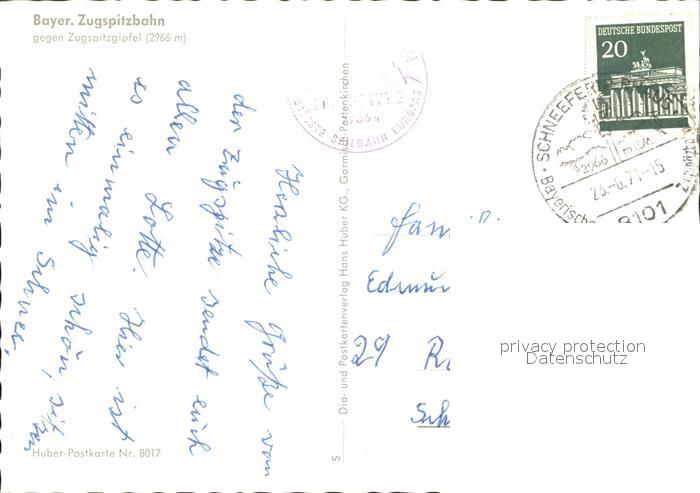 Bayer. Zugspitzbahn
gegen Zugspitzgipfel (2966 m)
Herzliche Grüße von
der Zugspitze sendet euch
allen Lotte. Hier ist
es einmalig schön, sitzen
mitten im Schnee.
Huber-Postkarte Nr. 8017
Dia- und Postkartenverlag Hans Huber KG., Garmisch-Partenkirchen
S
SEILBAHN EUROPAS
DEUTSCHE BUNDESPOST
20
SCHNEEFER
2966 m
26.-6.71-15
Bayerische
8101
Fam.
Edmun
29
privacy protection
Datenschutz